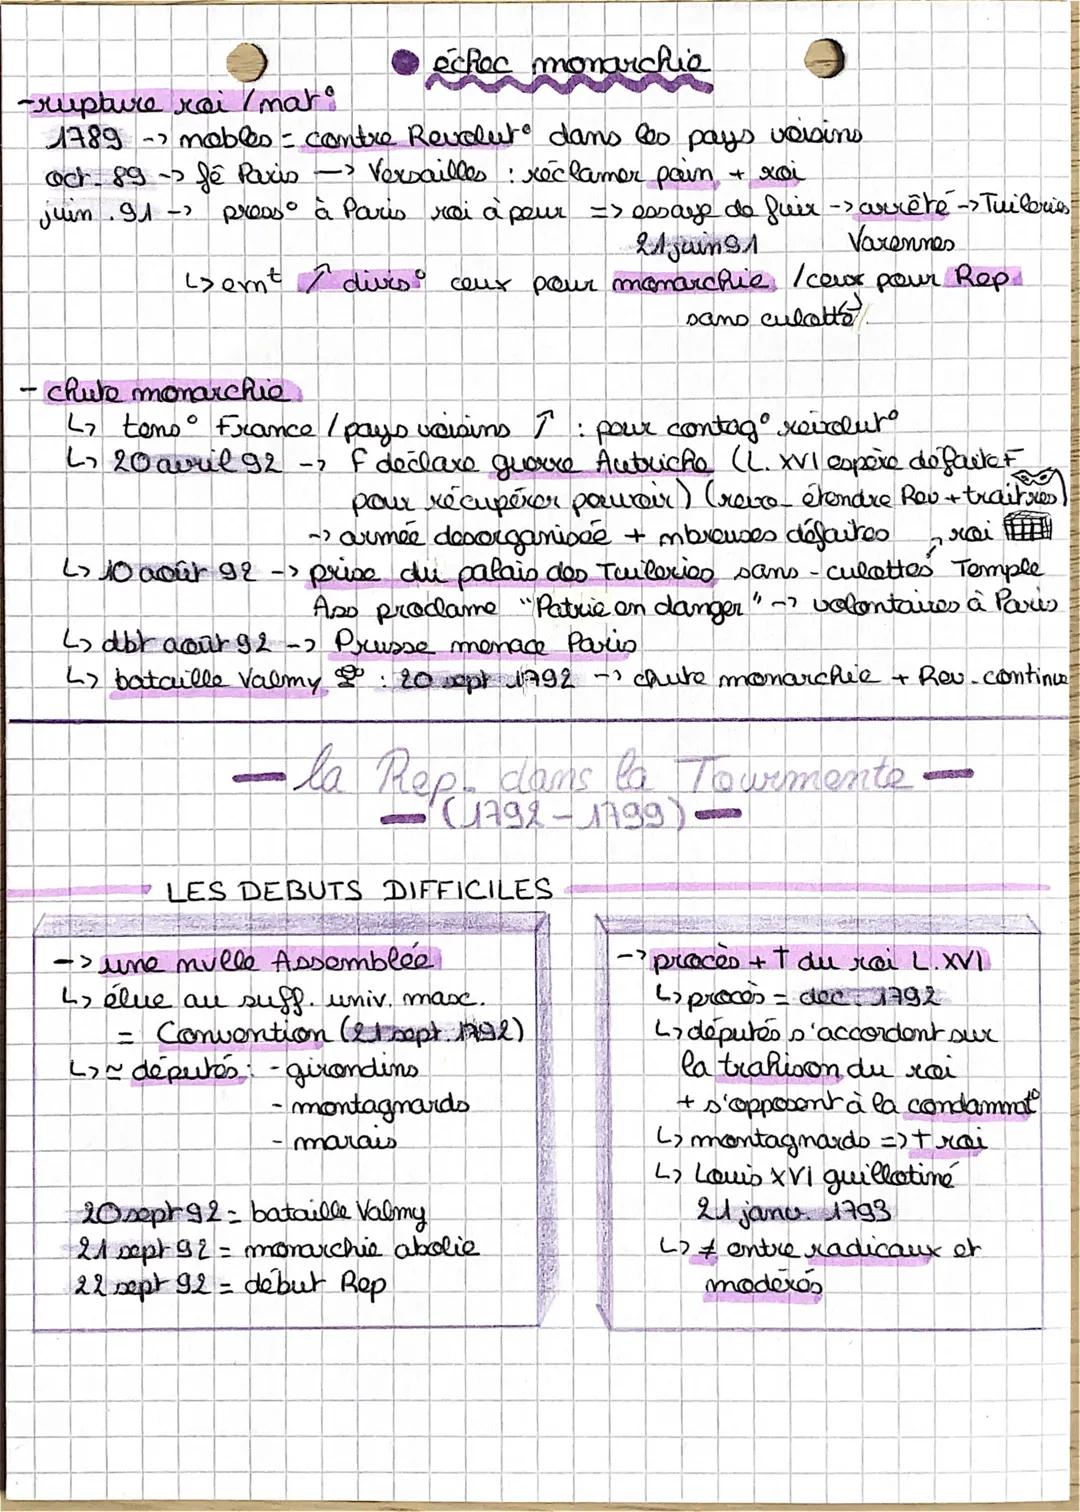 échec monarchie
-rupture roi / nat°
1789 -> nobles = contre Revolut° dans les pays voisins
oct. 89 -> fê Paris -> Versailles : réclamer pain + roi
juin .91 -> press° à Paris roi à peur => essaye de fuir -> arrêté -> Tuileries
21 juin 91 Varennes
↳ emt ↑ divis° ceux pour monarchie / ceux pour Rep
sans culotte
- chute monarchie
↳ tens° France / pays voisins ↑ : peur contag° révolut°
↳ 20 avril 92 -> F déclare guerre Autriche (L. XVI espère défaite F
pour récupérer pouvoir) (revo_ étendre Rev + traitres)
-> armée desorganisée + nbreuses défaites roi
↳ 10 août 92 -> prise du palais des Tuileries sans-culottes Temple
Ass proclame "Patrie en danger" -> volontaires à Paris
↳ dbt août 92 -> Prusse menace Paris
↳ bataille Valmy : 20 sept 1792 -> chute monarchie + Rev. continue
la Rep. dans la Tourmente
(1792-1799)
LES DEBUTS DIFFICILES
-> une nvlle Assemblée
↳ élue au suff. univ. masc.
= Convention (21 sept. 1792)
↳ ≃ députés : - girondins
- montagnards
- marais
20 sept 92 = bataille Valmy
21 sept 92 = monarchie abolie
22 sept 92 = début Rep
-> procès + † du roi L. XVI
↳ procès = dec. 1792
↳ députés s'accordent sur
la trahison du roi
+ s'opposent à la condamnat°
↳ montagnards => † roi
↳ Louis XVI guillotiné
21 janv. 1793
↳ ≠ entre radicaux et
modérés